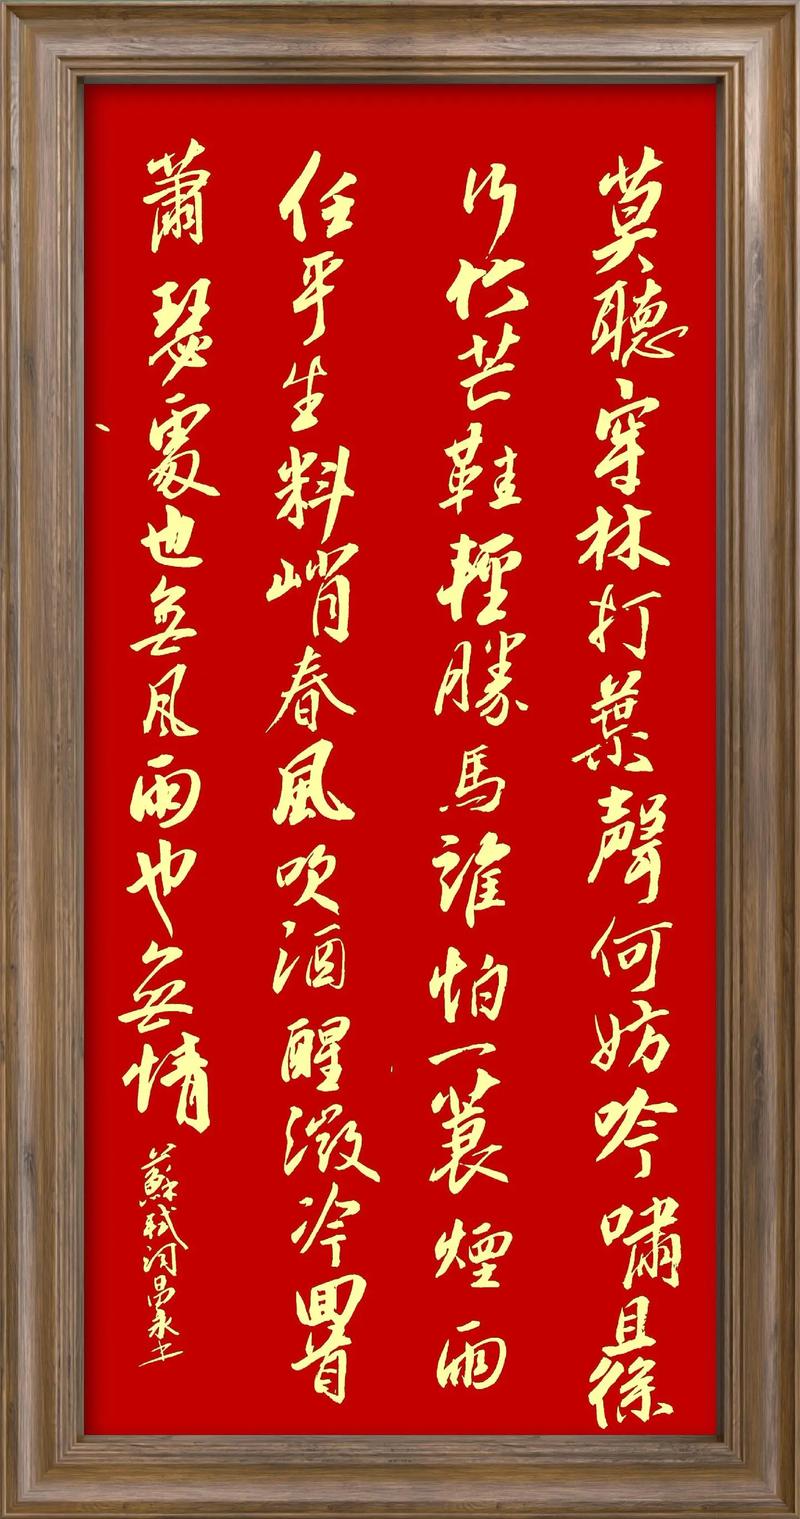 莫聽穿林打葉聲何妨吟嘯且徐
行竹芒鞋輕勝馬誰怕一蓑煙雨
任平生料峭春風吹酒醒微冷回首
蕭瑟處也無風雨也無情
蘇軾詞昌永书